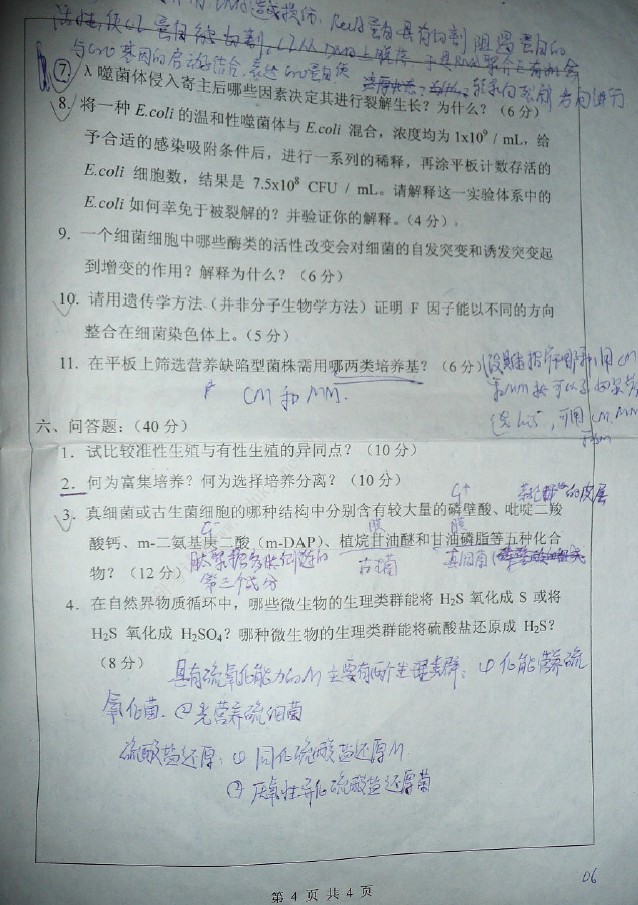 与cro基因的启动子结合，表达cro蛋白使
⑦. λ噬菌体侵入寄主后哪些因素决定其进行裂解生长？为什么？（6分）
8. 将一种 E.coli 的温和性噬菌体与 E.coli 混合，浓度均为 1x10⁹ / mL，给
予合适的感染吸附条件后，进行一系列的稀释，再涂平板计数存活的
E.coli 细胞数，结果是 7.5x10⁸ CFU / mL。请解释这一实验体系中的
E.coli 如何幸免于被裂解的？并验证你的解释。（4分）
9. 一个细菌细胞中哪些酶类的活性改变会对细菌的自发突变和诱发突变起
到增变的作用？解释为什么？（6分）
10. 请用遗传学方法（并非分子生物学方法）证明 F 因子能以不同的方向
整合在细菌染色体上。（5分）
11. 在平板上筛选营养缺陷型菌株需用哪两类培养基？（6分）
CM 和 MM.
六、问答题：（40分）
1. 试比较准性生殖与有性生殖的异同点？（10分）
2. 何为富集培养？何为选择培养分离？（10分）
G⁺ 的皮层
3. 真细菌或古生菌细胞的哪种结构中分别含有较大量的磷壁酸、吡啶二羧
G⁻ 膜 膜
酸钙、m-二氨基庚二酸（m-DAP）、植烷甘油醚和甘油磷脂等五种化合
物？（12分） 肽聚糖 古生菌 真细菌
第三个氨分
4. 在自然界物质循环中，哪些微生物的生理类群能将 H2S 氧化成 S 或将
H2S 氧化成 H2SO4？哪种微生物的生理类群能将硫酸盐还原成 H2S？
（8分） 具有硫氧化能力的M主要有两个生理类群：① 化能营养硫
氧化菌. ② 光营养硫细菌
硫酸盐还原：① 同化硫酸盐还原M.
② 厌氧性异化硫酸盐还原菌
06
第 4 页 共 4 页